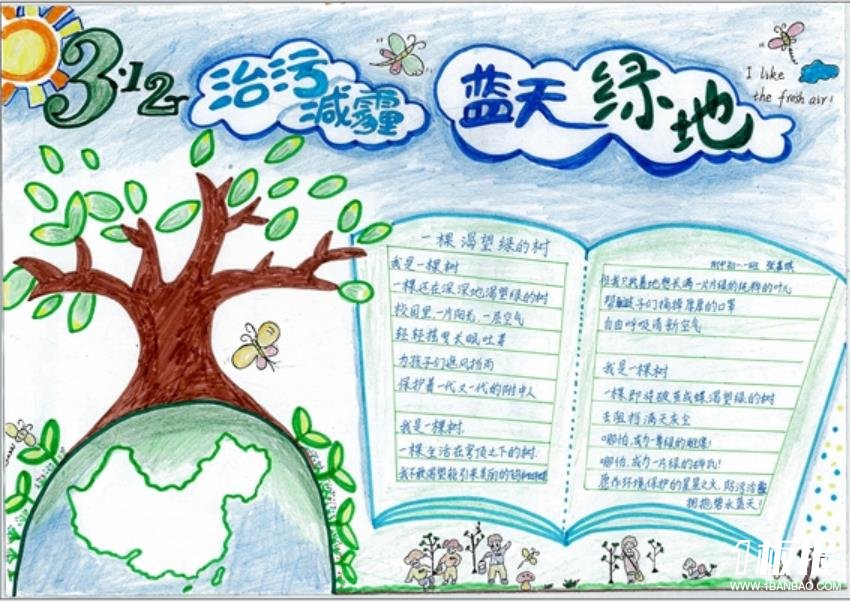 3.12
治污
减霾
蓝天绿地
I like
the fresh air!
一棵渴望绿的树
我是一棵树
一棵还在深深地渴望绿的树
校园里,一片阳光,一层空气
轻轻摇曳
为孩子们遮风挡雨
保护着一代又一代的附中人
我是一棵树,
一棵生活在穹顶之下的树.
我不敢渴望能引来美丽的
附中初一一班
但我只执着地想长满一片片绿的纯粹的叶儿
帮孩子们摘掉厚厚的口罩
自由呼吸清新空气
我是一棵树
一棵即将破茧成蝶渴望绿的树
去阻挡满天灰尘
哪怕,成为一尊绿的雕像!
哪怕,成为一片绿的碎瓦!
愿作环境保护的星星之火,防治污霾
拥抱碧水蓝天!
WWW.1BANBAO.COM